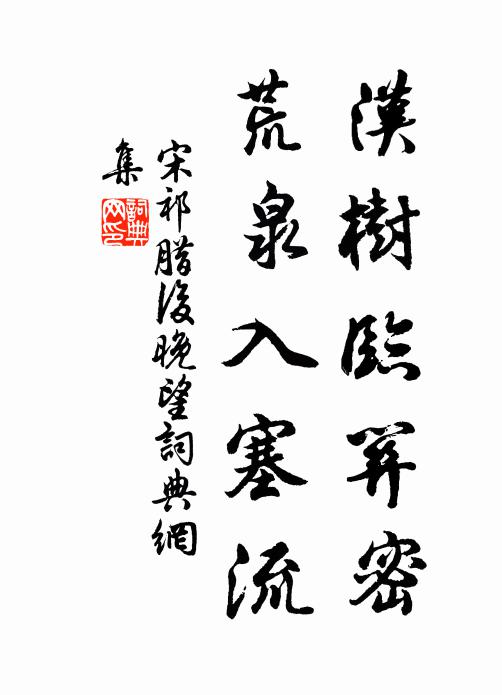 漢樹臨關密
荒泉入塞流
宋祁腊後晚望詞典網
集
詞典网印